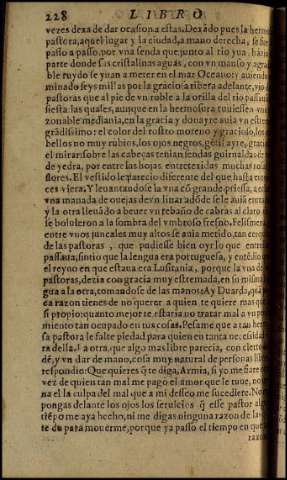 228 LIBRO
vezes dexa de dar ocasion a estas. Dexādo pues la hermo
pastora, aquel lugar y la ciudad, a mano derecha, se fue
passo a passo, por vna senda que junto al rio yua, hazia
parte donde sus cristalinas aguas, con vn manso y agra
ble ruydo se yuan a meter en el mar Oceano: y auiendo
minado seys millas por la graciosa ribera adelante, vio d
pastoras que al pie de vn roble a la orilla del rio passauā
siesta: las quales, aunque en la hermosura tuuiessen vn
zonable mediania, en la gracia y donayre auia vn estrem
grādissimo: el color del rostro moreno y gracioso, los
bellos no muy rubios, los ojos negros, gētil ayre, gracio
el mirar: sobre las cabeças tenian sendas guirnaldas
de yedra, por entre las hojas entretexidas muchas rosas
flores. El vestido le parecio diferente del que hasta
ces viera. Y leuantandose la vna cō grande priessa, a echar
vna manada de ouejas de vn linar adōde se le auia entra
y la otra llegādo a beuer vn rebaño de cabras al claro
se boluieron a la sombra del vmbroso fresno. Felismena
entre vnos juncales muy altos se auia metido, tan cerca
de las pastoras, que pudiesse bien oyr lo que entre
passaua, sintio que la lengua era portuguesa, y entēdio
el reyno en que estaua era Lusitania, porque la vna de
pastoras, dezia con gracia muy estremada, en su misma
gua a la otra, tomandose de las manos: Ay Duarda,
ca razon tienes de no querer a quien te quiere mas que
si propio: quanto mejor te estaria no tratar mal a vn pen
miento tan ocupado en tus cosas. Pesame que a tan hermo
sa pastora le falte piedad, para quien en tanta nec. cuida
ra della. La otra, que algo mas libre parecia, con cierto
dē, y vn dar de mano, cosa muy natural de personas libres
respondio: Que quieres q̄ te diga, Armia, si yo me fiare
vez de quien tan mal me pago el amor que le tuue, no
na el la culpa del mal que a mi desso me sucediere. No
pongas delante los ojos los seruicios q̄ esse pastor al
tiēpo me aya hecho, ni me digas ninguna razon de las
te da para mouerme, porque ya passo el tiempo en que
razo